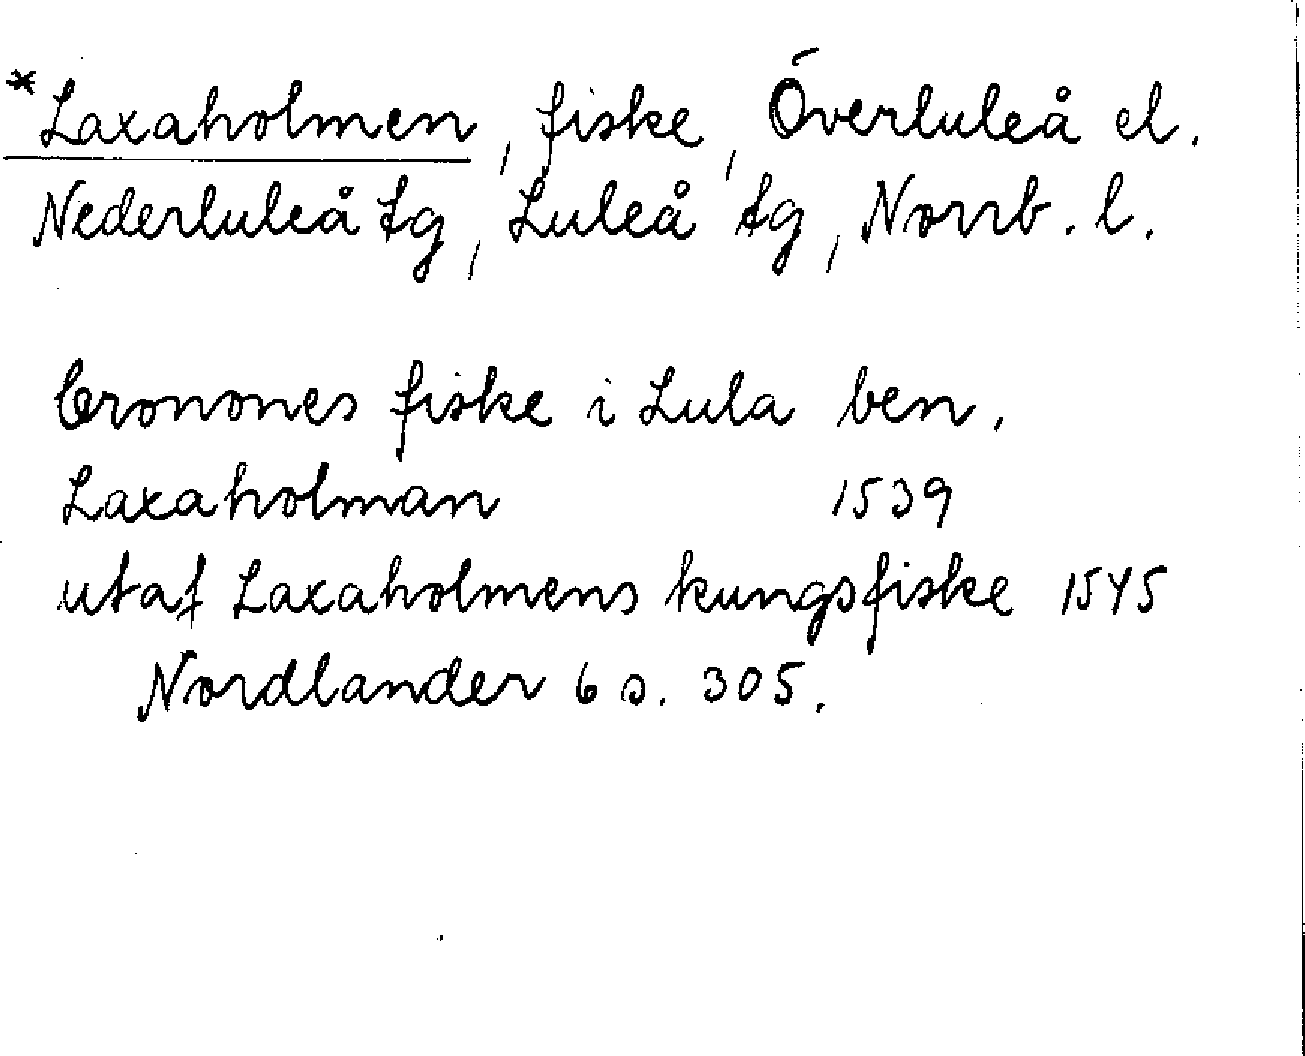 *Laxaholmen, fiske, Överluleå el.
Nederluleå tg, Luleå tg, Norrb. l.
Cronones fiske i Lula ben.
Laxaholman 1539
utaf Laxaholmens kungsfiske 1545
Nordlander 6 s. 305.